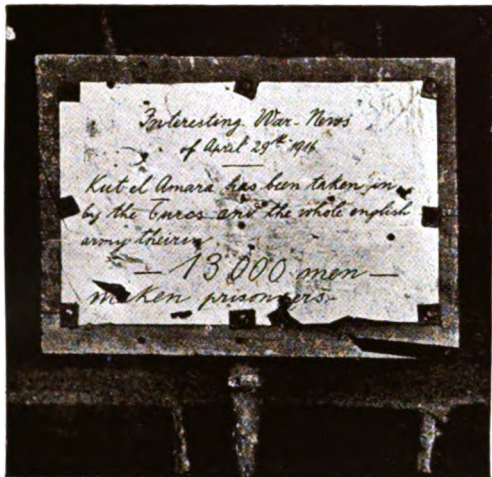 Interesting War-News
of April 29th 1916
Kut el Amara has been taken in
by the Turcs and the whole english
army theirin
— 13 000 men —
maken prisoners.